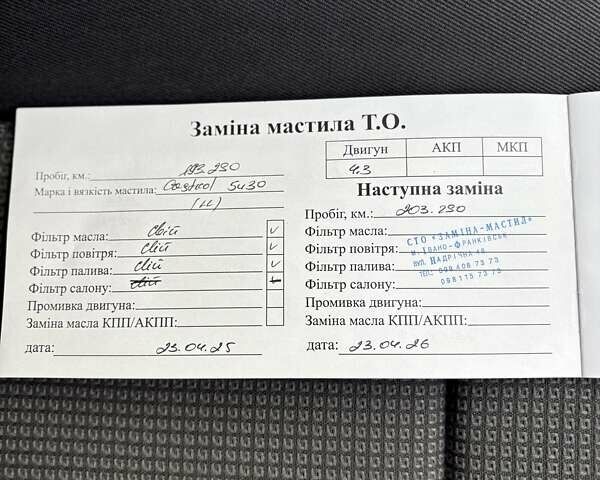 Заміна мастила Т.О.
Двигун АКП МКП
4.3
Пробіг, км.: 193.290
Марка і вязкість мастила: Castrol 5w30
(LL)
Фільтр масла: свій v
Фільтр повітря: свій v
Фільтр палива: свій v
Фільтр салону: свій
Промивка двигуна:
Заміна масла КПП/АКПП:
дата: 23.04.25
Наступна заміна
Пробіг, км.: 203.290
Фільтр масла:
Фільтр повітря:
Фільтр палива:
Фільтр салону:
Промивка двигуна:
Заміна масла КПП/АКПП:
дата: 23.04.26
СТО "ЗАМІНА-МАСТИЛ"
м. Івано-Франківськ
вул. Надрічна 4б
тел: 099 408 73 73
098 113 73 73